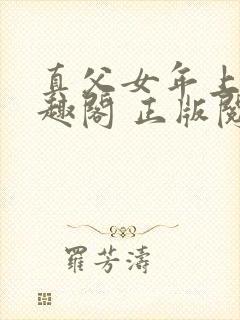 真父女年上
趣阁 正版阅
羅芳濤